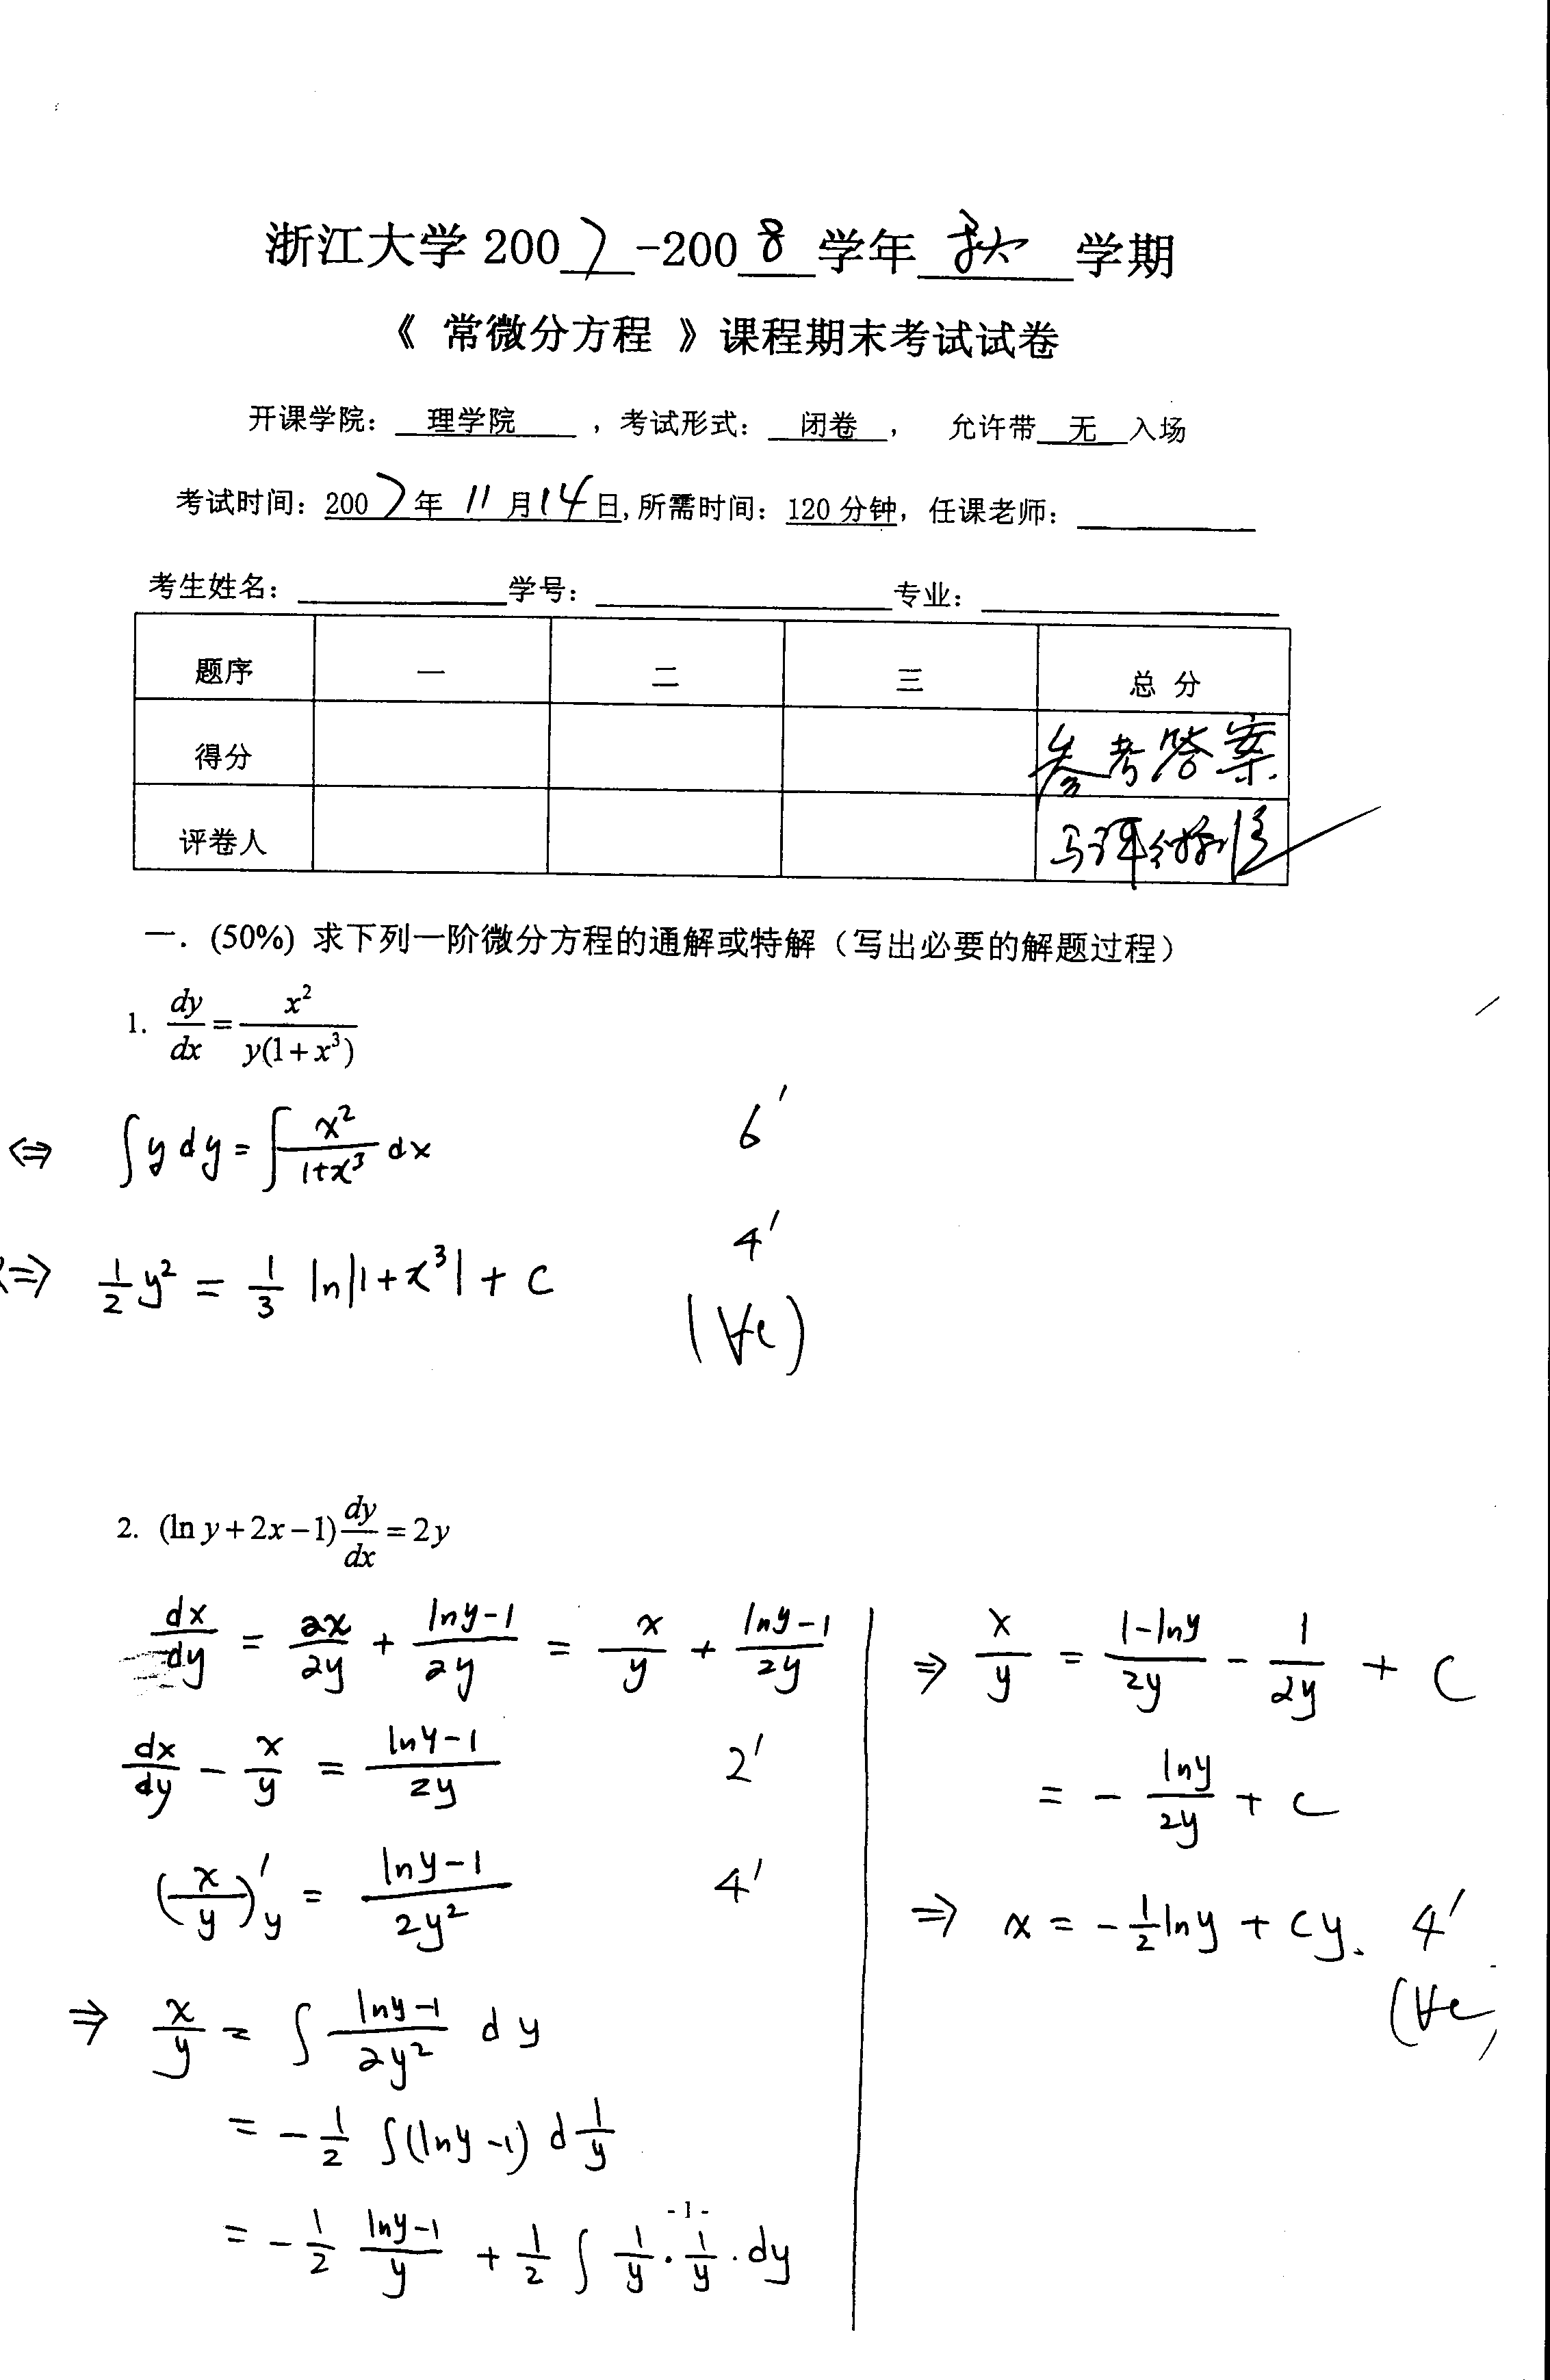 浙江大学 2007-2008 学年 秋 学期
《 常微分方程 》课程期末考试试卷
开课学院： 理学院 ，考试形式： 闭卷 ， 允许带 无 入场
考试时间：2007年 11月14日,所需时间：120分钟，任课老师：
考生姓名： 学号： 专业：
题序 一 二 三 总 分
得分 参考答案
评卷人 与评分标准
一．(50%) 求下列一阶微分方程的通解或特解（写出必要的解题过程）
1. dy/dx = x²/(y(1+x³))
⇔ ∫y dy = ∫ x²/(1+x³) dx 6′
⇔ 1/2 y² = 1/3 ln|1+x³| + c 4′
(∀c)
2. (ln y+2x−1) dy/dx = 2y
dx/dy = 2x/2y + (lny-1)/2y = x/y + (lny-1)/2y
dx/dy - x/y = (lny-1)/2y 2′
(x/y)′y = (lny-1)/2y² 4′
⇒ x/y = ∫ (lny-1)/2y² dy
= - 1/2 ∫(lny-1) d 1/y
= - 1/2 (lny-1)/y + 1/2 ∫ 1/y · 1/y · dy
⇒ x/y = (1-lny)/2y - 1/2y + C
= - lny/2y + C
⇒ x = - 1/2 lny + cy. 4′
(∀c)
- 1 -